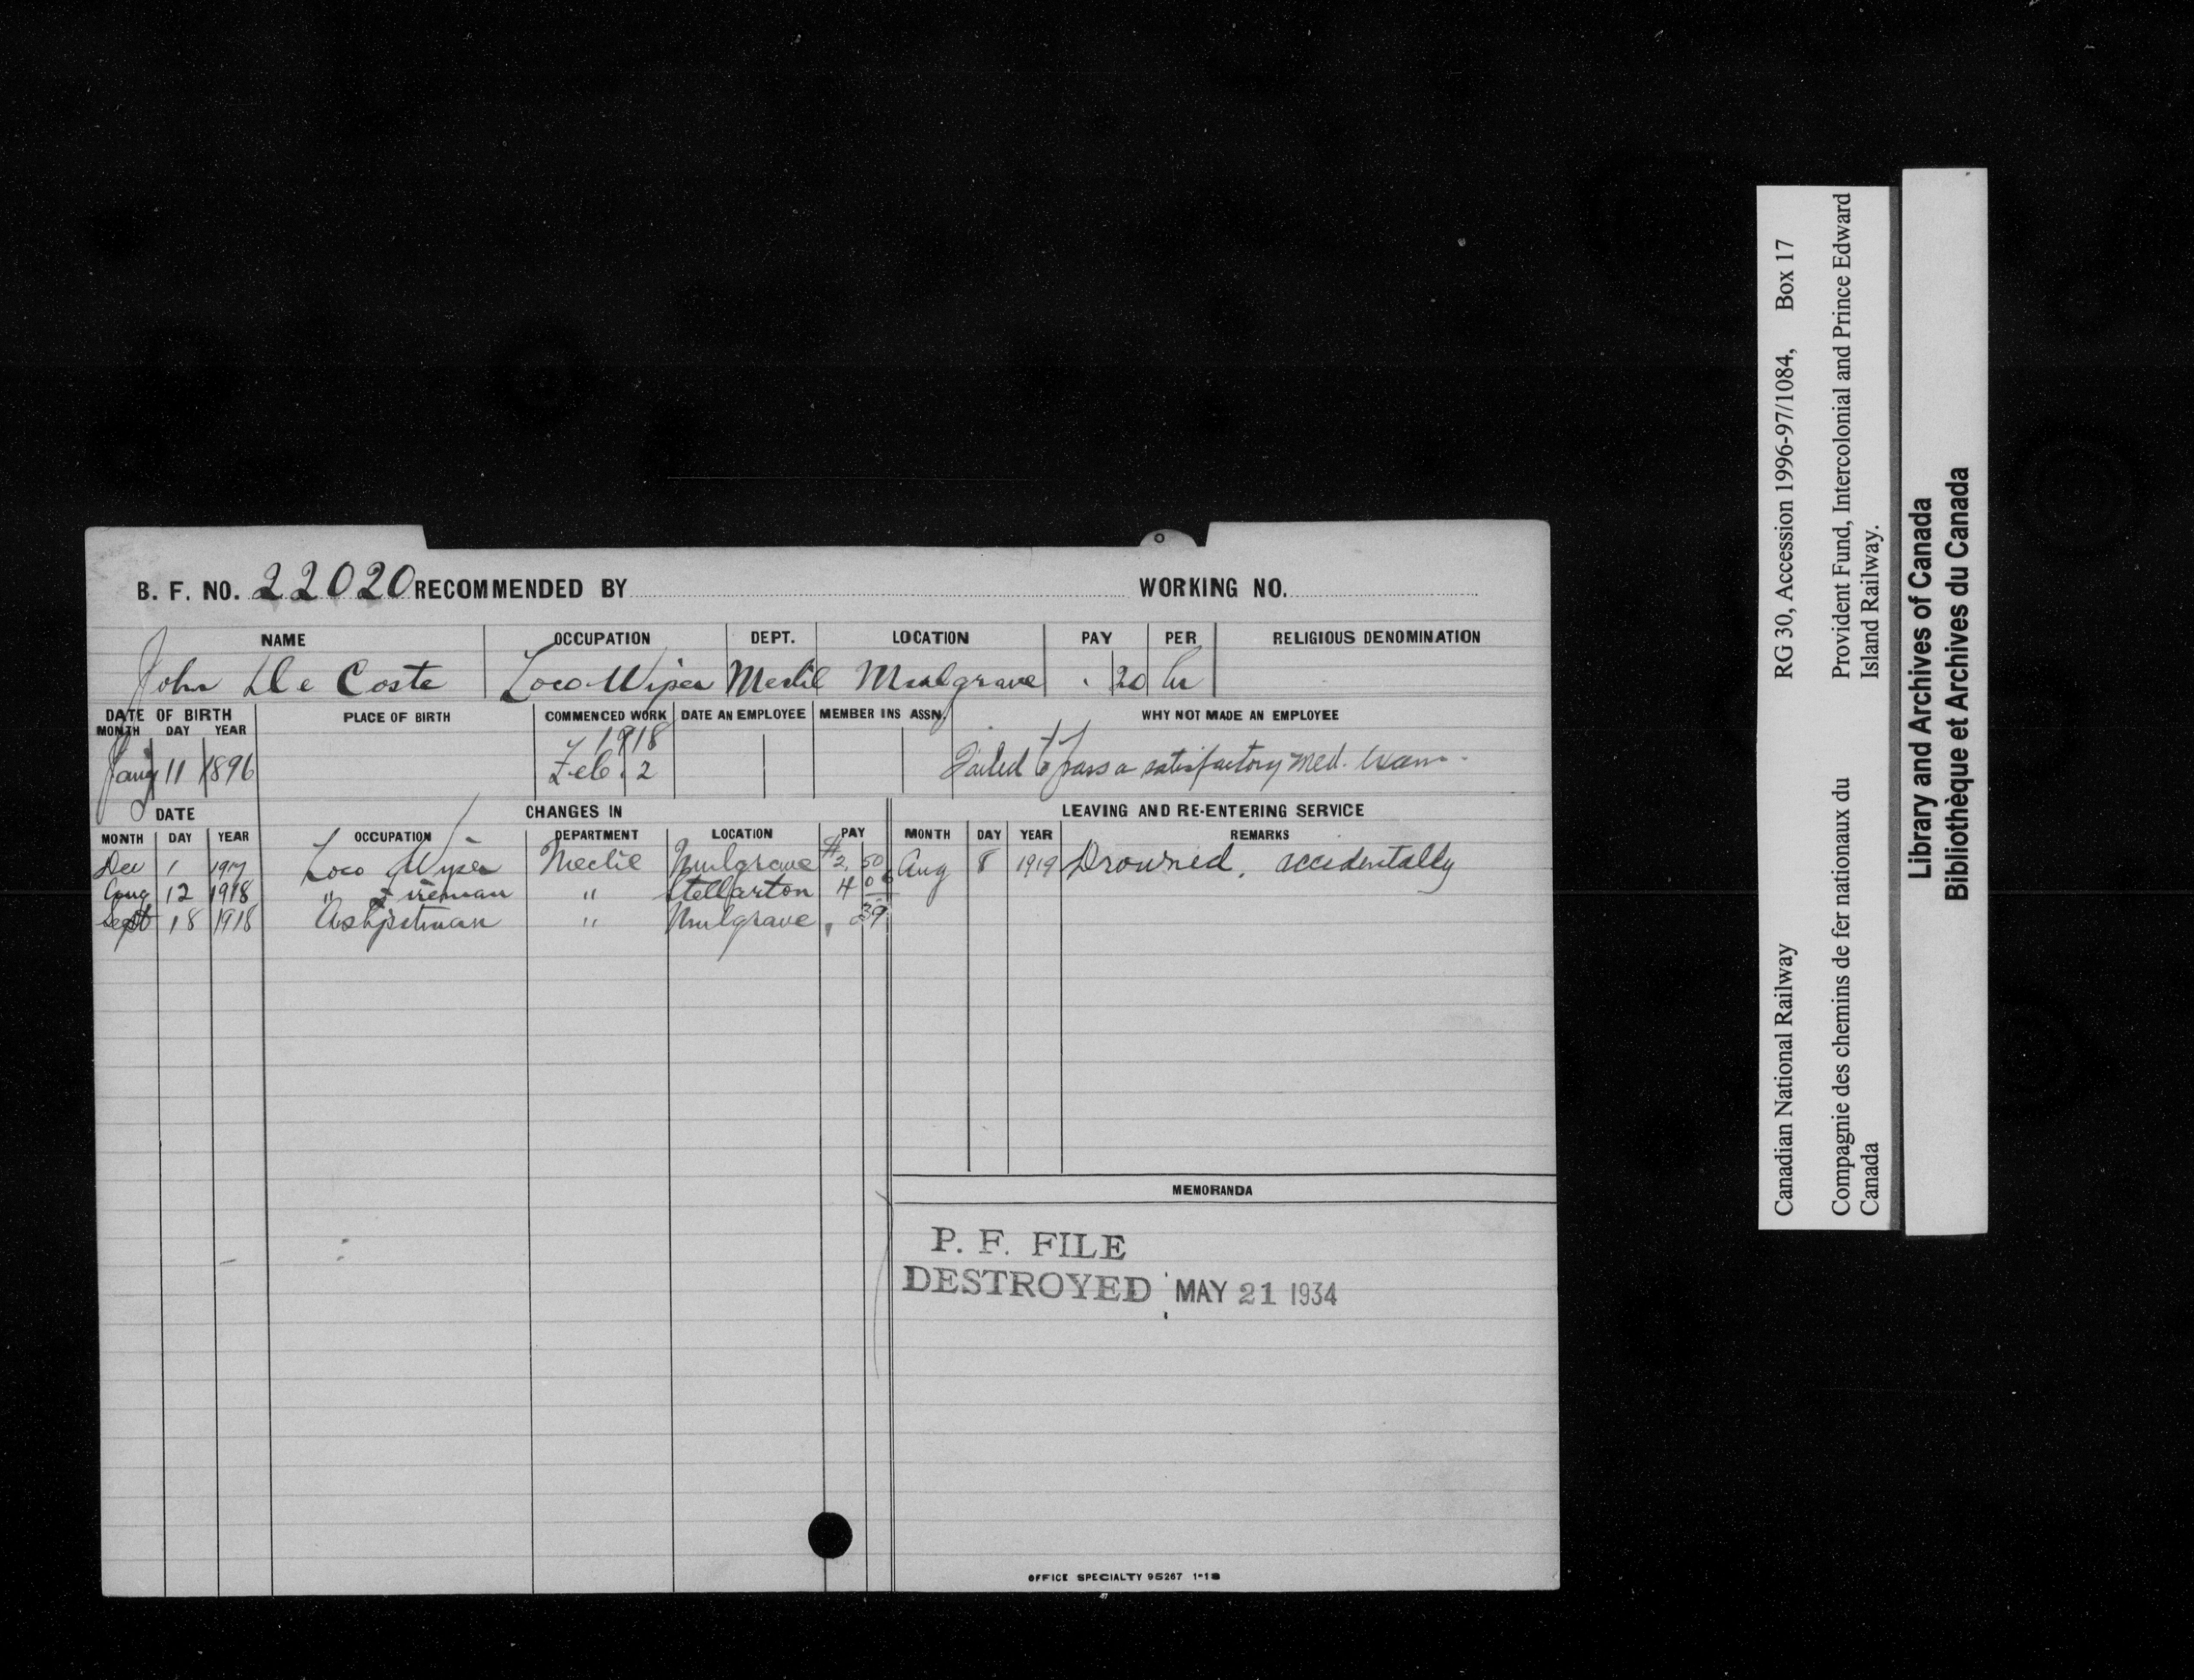 B. F. NO. 22020 RECOMMENDED BY WORKING NO.
NAME OCCUPATION DEPT. LOCATION PAY PER RELIGIOUS DENOMINATION
John De Coste Loco Wiper Mechl Mulgrave . 20 hr
DATE OF BIRTH PLACE OF BIRTH COMMENCED WORK DATE AN EMPLOYEE MEMBER INS ASSN. WHY NOT MADE AN EMPLOYEE
MONTH DAY YEAR
1918
Jany 11 1896 Feb. 2 Failed to pass a satisfactory med. exam.
DATE CHANGES IN LEAVING AND RE-ENTERING SERVICE
MONTH DAY YEAR OCCUPATION DEPARTMENT LOCATION PAY MONTH DAY YEAR REMARKS
Dec 1 1917 Loco Wiper Mechl Mulgrave $2. 50 Aug 8 1919 Drowned, accidentally
Aug 12 1918 " Fireman " Stellarton 4 06
Sept 18 1918 Ashpitman " Mulgrave . 39
MEMORANDA
P. F. FILE
DESTROYED MAY 21 1934
OFFICE SPECIALTY 95267 1-18
Canadian National Railway RG 30, Accession 1996-97/1084, Box 17
Compagnie des chemins de fer nationaux du Provident Fund, Intercolonial and Prince Edward
Canada Island Railway.
Library and Archives of Canada
Bibliothèque et Archives du Canada